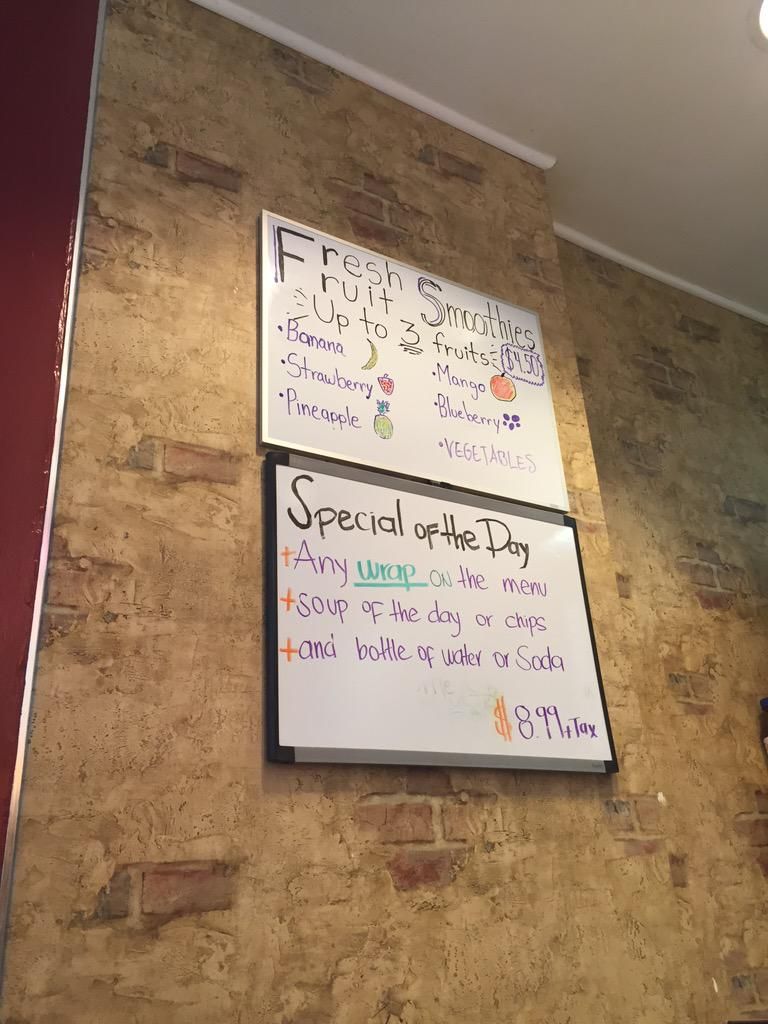 Fresh
Fruit Smoothies
Up to 3 fruits $4.50
• Banana
• Strawberry
• Pineapple
• Mango
• Blueberry
• VEGETABLES
Special of the Day
+ Any wrap ON the menu
+ soup of the day or chips
+ and bottle of water or Soda
$8.99 + Tax